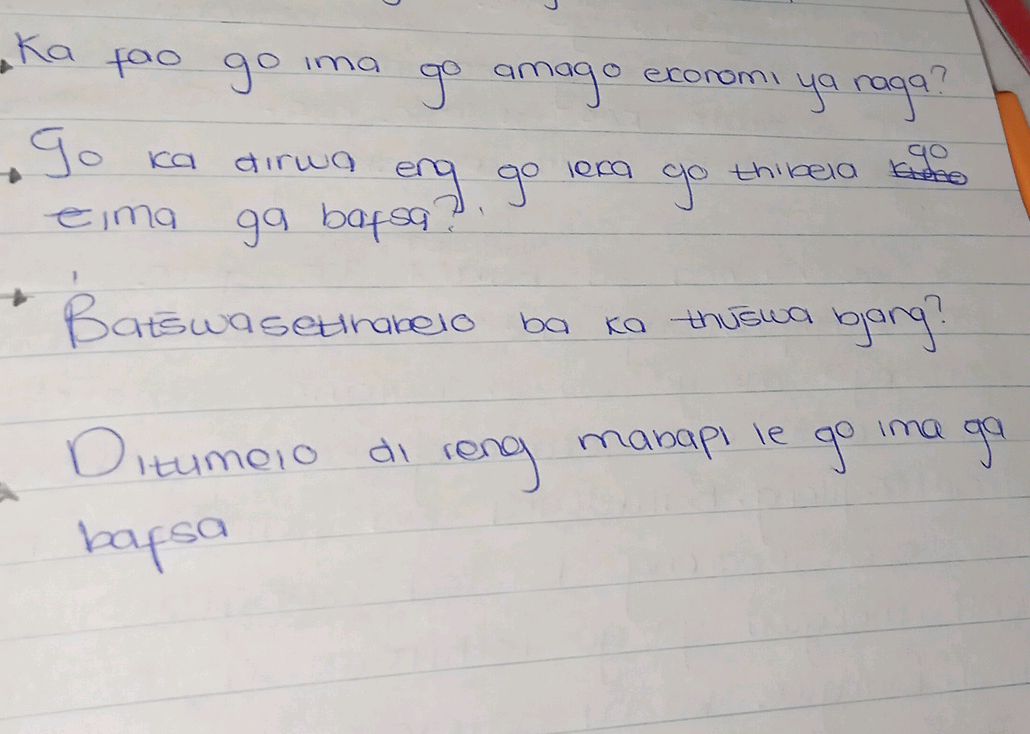 Ka fao go ima go amago ekonomi ya naga?
Go ka dirwa eng go leka go thibela go
eima ga bafsa?
Batšwasetlhabelo ba ka thušwa bjang?
Ditumelo di reng mabapi le go ima ga
bafsa